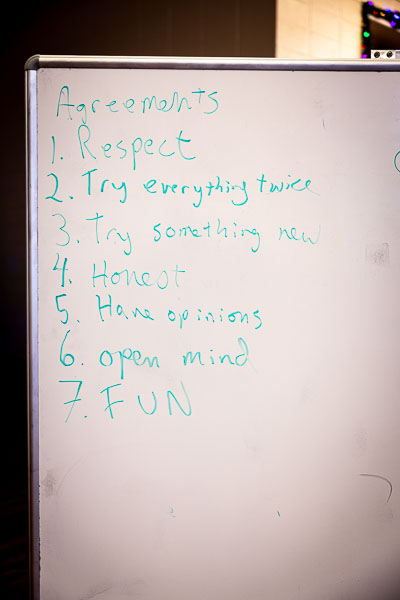 Agreements
1. Respect
2. Try everything twice
3. Try something new
4. Honest
5. Have opinions
6. open mind
7. FUN